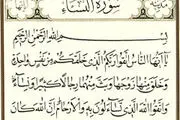 سُورَةُ النِّسَاءِ
بِسْمِ اللَّهِ الرَّحْمَٰنِ الرَّحِيمِ
يَا أَيُّهَا النَّاسُ اتَّقُوا رَبَّكُمُ الَّذِي خَلَقَكُمْ مِنْ نَفْسٍ وَاحِدَةٍ
وَخَلَقَ مِنْهَا زَوْجَهَا وَبَثَّ مِنْهُمَا رِجَالًا كَثِيرًا وَنِسَاءً
وَاتَّقُوا اللَّهَ الَّذِي تَسَاءَلُونَ بِهِ وَالْأَرْحَامَ إِنَّ اللَّهَ كَانَ